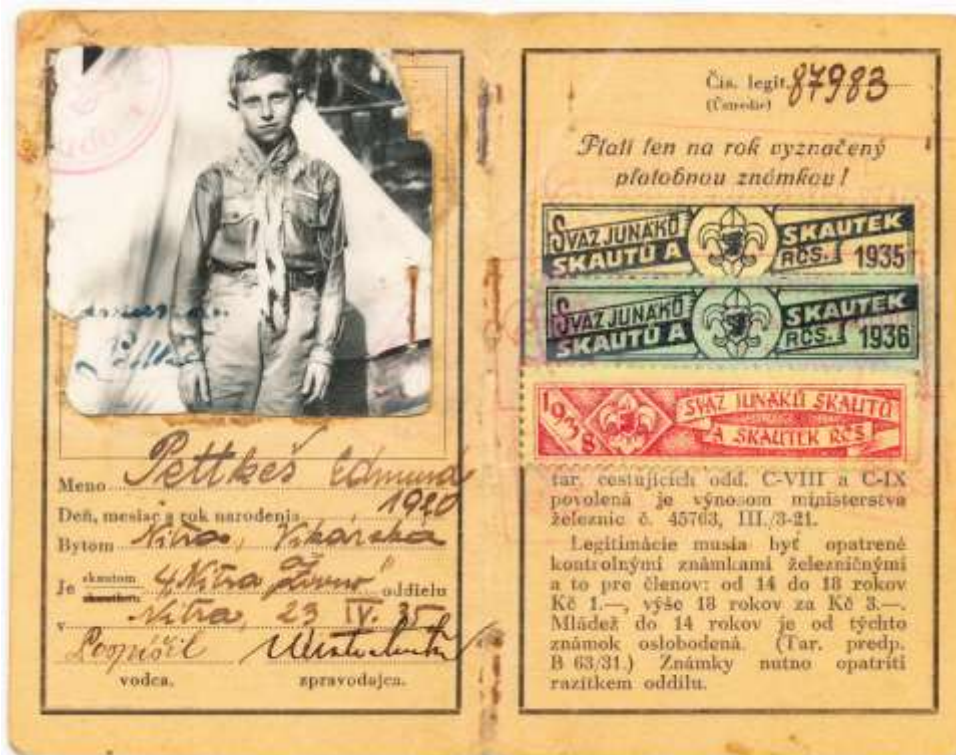 Meno Pettkeš Edmund
Deň, mesiac a rok narodenia 1920
Bytom Nitra, Vikárska
Je skautom 4. Nitra oddielu
v Nitra, 23 IV. 35
vodca. zpravodajca.
Čis. legit. 87983
(Ústredie)
Platí len na rok vyznačený
platobnou známkou!
SVAZ JUNÁKŮ
SKAUTŮ A SKAUTEK
RČS. 1935
SVAZ JUNÁKŮ
SKAUTŮ A SKAUTEK
RČS. 1936
1938 SVAZ JUNÁKŮ SKAUTŮ
A SKAUTEK RČS
tar. cestujících odd. C-VIII a C-IX
povolená je výnosom ministerstva
železnic č. 45763, III./3-21.
Legitimácie musia byť opatrené
kontrolnými známkami železničnými
a to pre členov: od 14 do 18 rokov
Kč 1.—, výše 18 rokov za Kč 3.—.
Mládež do 14 rokov je od týchto
známok oslobodená. (Tar. predp.
B 63/31.) Známky nutno opatriti
razítkem oddílu.